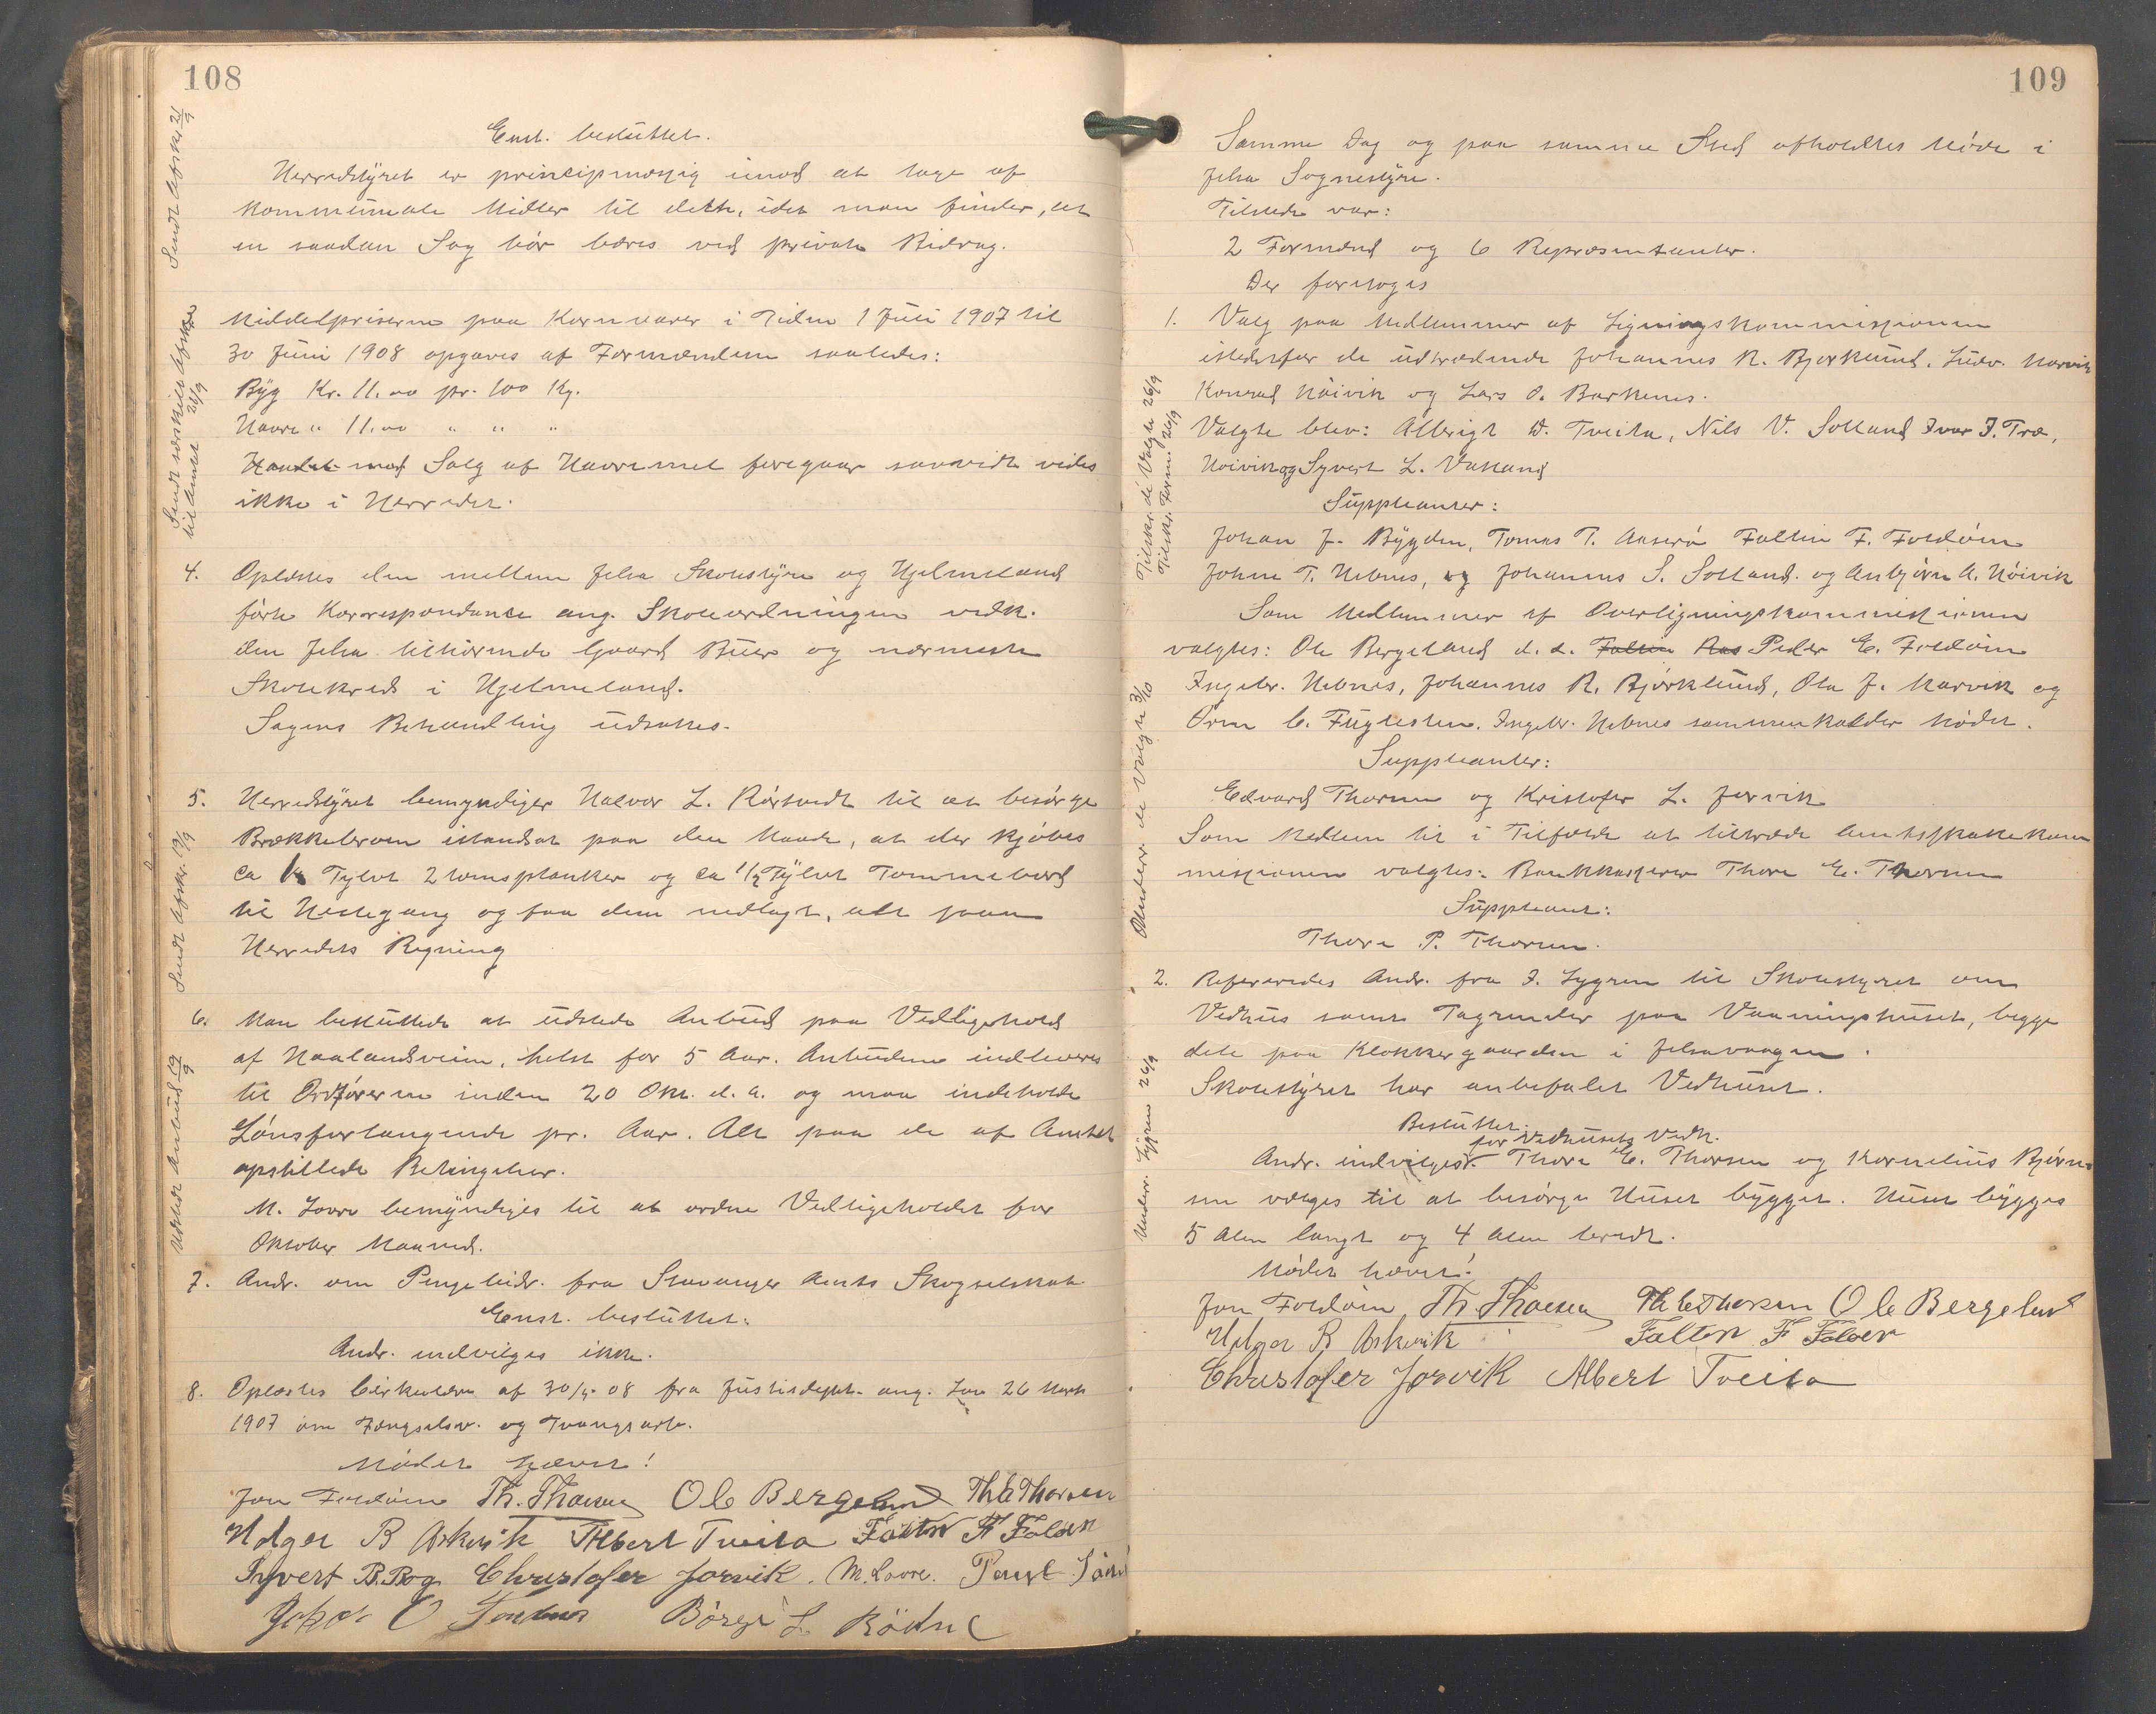 108
Sendt Afskr 21/9
Enst. besluttet.
Herredstyret er principmæssig imod at tage af
kommunale Midler til dette, idet man finder, at
en saadan Sag bør bæres ved private Bidrag.
Sendt særskilt Afskr
til Amtet 26/9
Middelpriserne paa Kornvarer i Tiden 1 Juli 1907 til
30 Juni 1908 opgaves af Formændene saaledes:
Byg Kr. 11.00 pr. 100 Kg.
Havre " 11.00 " " "
Handel med Salg af Havremel foregaar saavidt vides
ikke i Herredet.
4. Oplæstes den mellem Jelsa Skolestyre og Hjelmeland
førte Korrespondance ang. Skoleordningen vedk.
den Jelsa tilhørende Gaard Buer og nærmeste
Skolekreds i Hjelmeland.
Sagens Behandling udsattes.
Sendt Afskr. 19/9
5. Herredstyret bemyndiger Halvor L. Rørtvedt til at besørge
Brækkebroen istandsat paa den Maade, at der kjøbes
ca Tylvt 2 tomsplanker og ca 1/2 Tylvt Tommebord
til Hestegang og faa dem nedlagt, alt paa
Herredets Regning
Udstedt Anbud 19/9
6. Man besluttede at udstede Anbud paa Vedligehold
af Naalandsveien, helst for 5 Aar. Anbudene indleveres
til Ordføreren inden 20 Okt. d. a. og maa indeholde
Lønsforlangende pr. Aar. Alt paa de af Amtet
opstillede Betingelser.
M. Lovre bemyndiges til at ordne Vedligeholdet for
Oktober Maaned.
7. Andr. om Pengebidr. fra Stavanger Amts Skogselskab
Enst. besluttet:
Andr. indvilges ikke.
8. Oplæstes Cirkulære af 30/4-08 fra Justisdept. ang. Lov 26 Marts
1907 om Fængselsv. og Tvangsarb.
Mødet hævet!
Jon Foldøen Th. Thorsen Ole Bergeland Th E Thorsen
Holger B Askvik Albert Tveita Faltin F Foldøen
Syvert B. Bog Christofer Jorvik. M. Lovre.
Børge L Rødne
109
Samme Dag og paa samme Sted afholdtes Møde i
Jelsa Sognestyre.
Tilstede var:
2 Formænd og 6 Repræsentanter.
Der foretoges
Tilskr. de Valgte 26/9
Tilskr. Form. 26/9
1. Valg paa Medlemmer af Ligningskommissionen
istedetfor de udtrædende Johannes R. Bjørklund, Ludv. Marvik
Konrad Nøivik og Lars O. Barkenes.
Valgte blev: Albrigt D. Tveita, Nils V. Solland Ivar I. Træ,
Nøivik og Syvert L. Vatland
Suppleanter:
Johan J. Bygden, Tomas T. Faltin F. Foldøen
Johne T. Nebnes, og Johannes S. Solland. og Anbjørn A. Nøivik
Underr. de Valgte 3/10
Som Medlemmer af Overligningskommissionen
valgtes: Ole Bergeland d. æ. Faltin Peder E. Foldøen
Ingebr. Nebnes, Johannes R. Bjørklund, Ola J. Marvik og
Orm C. Fuglesten. Ingebr. Nebnes sammenkalder Mødet.
Suppleanter:
Edvard Thorsen og Kristofer L. Jorvik
Som Medlem til i Tilfælde at tiltræde Amtsskattekom
missionen valgtes: Bankkasserer Thore E. Thorsen
Suppleant:
Thore P. Thorsen.
Underr. Sygren 26/9
2. Refereredes Andr. fra I. Lygren til Skolestyret om
Vedhus samt Tagrender paa Vaaningshuset, begge
dele paa Klokkergaarden i Jelsavaagen.
Skolestyret har anbefalet Vedhuset.
Besluttet:
for Vedhusets Vedk.
Andr. indvilges. Thore E. Thorsen og Kornelius Bjørn-
sen vælges til at besørge Huset bygget. Huset bygges
5 Alen langt og 4 Alen bredt.
Mødet hævet!
Jon Foldøen Th. Thorsen Th E Thorsen Ole Bergeland
Holger B Askvik Faltin F Foldøen
Christofer Jorvik Albert Tveita